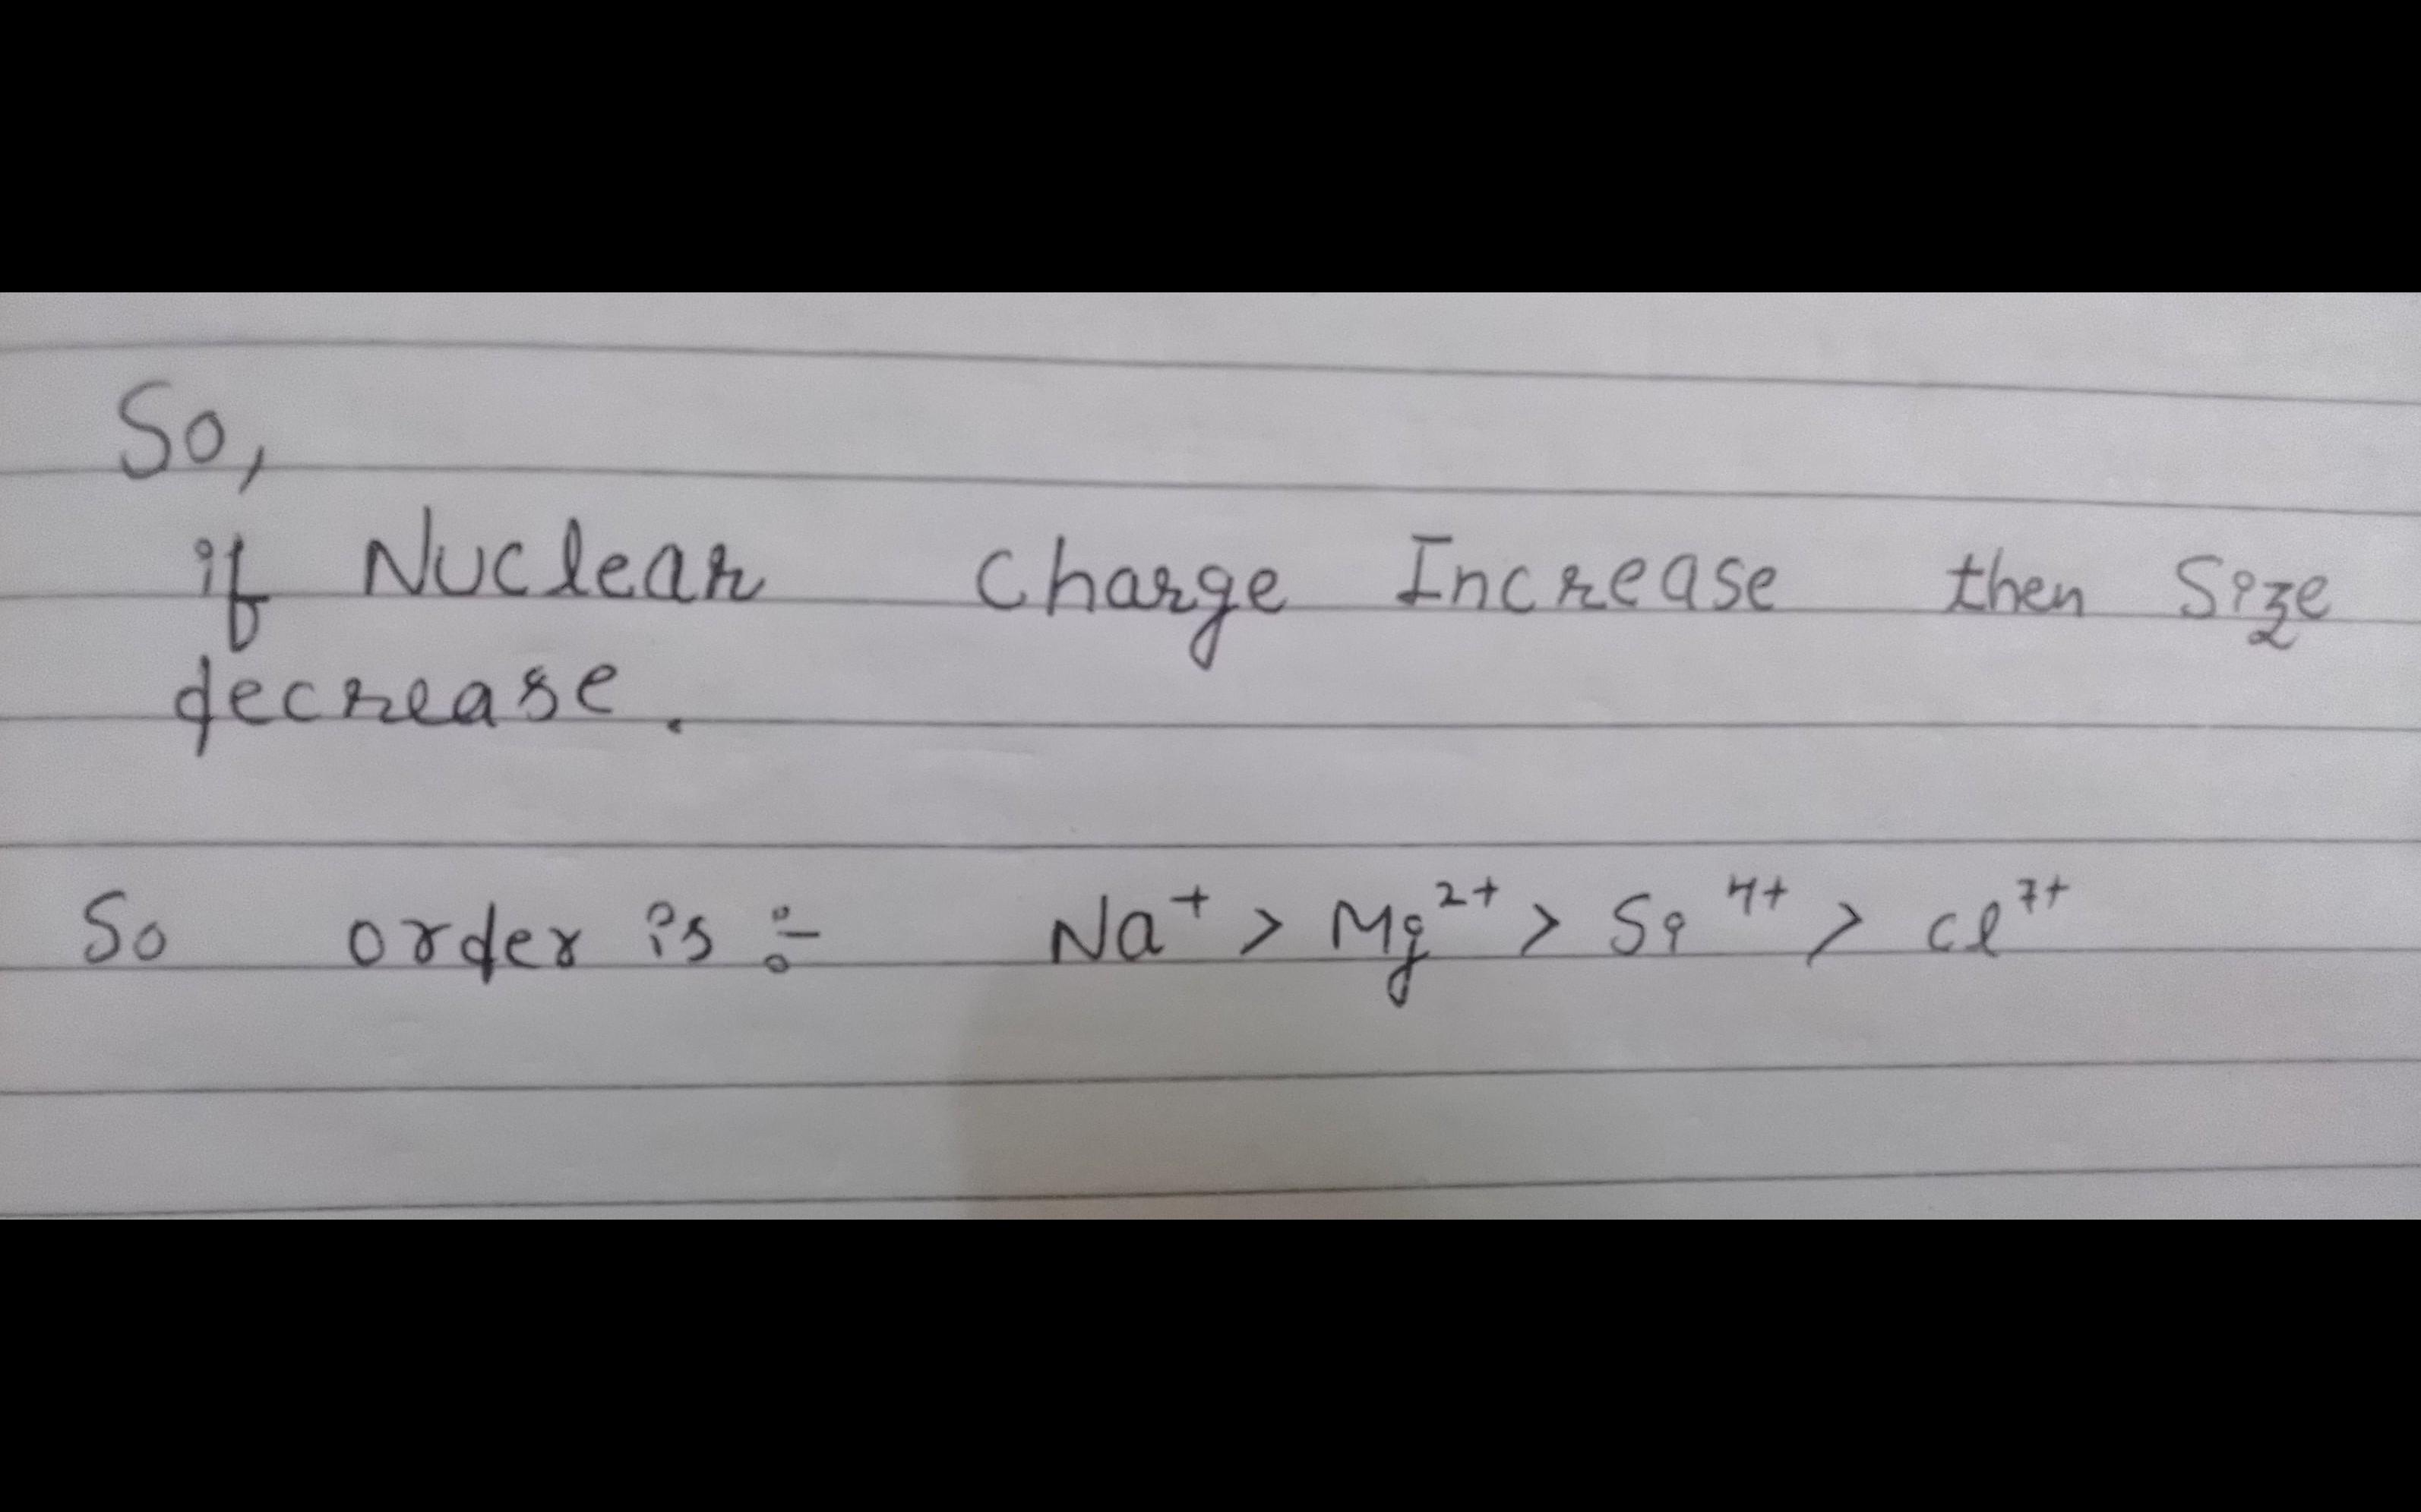 So,
if Nuclear charge Increase then Size
decrease.
So order is :- Na⁺ > Mg²⁺ > Si⁴⁺ > Cl⁷⁺